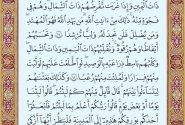 ذَاتَ الْيَمِينِ وَإِذَا غَرَبَت تَّقْرِضُهُمْ ذَاتَ الشِّمَالِ وَهُمْ فِي
فَجْوَةٍ مِّنْهُ ذَٰلِكَ مِنْ آيَاتِ اللَّهِ مَن يَهْدِ اللَّهُ فَهُوَ الْمُهْتَدِ
وَمَن يُضْلِلْ فَلَن تَجِدَ لَهُ وَلِيًّا مُّرْشِدًا وَتَحْسَبُهُمْ
أَيْقَاظًا وَهُمْ رُقُودٌ وَنُقَلِّبُهُمْ ذَاتَ الْيَمِينِ وَذَاتَ الشِّمَالِ
وَكَلْبُهُم بَاسِطٌ ذِرَاعَيْهِ بِالْوَصِيدِ لَوِ اطَّلَعْتَ عَلَيْهِمْ لَوَلَّيْتَ
مِنْهُمْ فِرَارًا وَلَمُلِئْتَ مِنْهُمْ رُعْبًا وَكَذَٰلِكَ بَعَثْنَاهُمْ
لِيَتَسَاءَلُوا بَيْنَهُمْ قَالَ قَائِلٌ مِّنْهُمْ كَمْ لَبِثْتُمْ قَالُوا لَبِثْنَا
يَوْمًا أَوْ بَعْضَ يَوْمٍ قَالُوا رَبُّكُمْ أَعْلَمُ بِمَا لَبِثْتُمْ فَابْعَثُوا
أَحَدَكُم بِوَرِقِكُمْ هَٰذِهِ إِلَى الْمَدِينَةِ فَلْيَنظُرْ أَيُّهَا أَزْكَىٰ